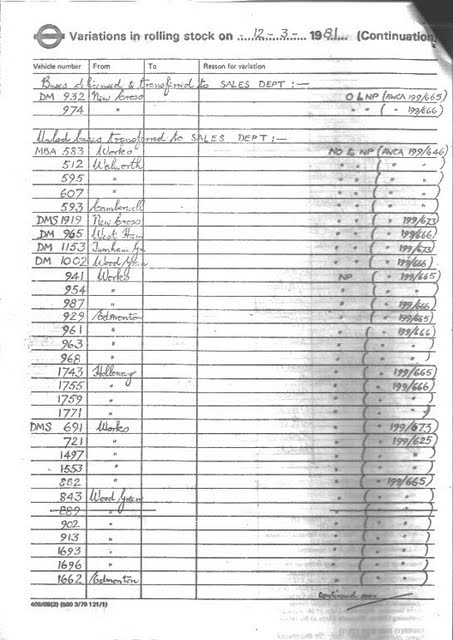 Variations in rolling stock on 12-3- 1981 (Continuation
Vehicle number From To Reason for variation
Buses delicensed & transferred to SALES DEPT :—
DM 932 New Cross O L NP (AWCA 199/665)
974 " " " ( " 199/666)
Unlicd buses transferred to SALES DEPT :—
MBA 583 Works NO L NP (AWCA 199/646)
512 Walworth " " " ( " " )
595 " " " " ( " " )
607 " " " " ( " " )
593 Camberwell " " " ( " " )
DMS 1919 New Cross " " " ( " 199/673)
DM 965 West Ham " " " ( " 199/666)
DM 1153 Turnham Gn " " " ( " 199/673)
DM 1002 Wood Green " " " ( " 199/666)
941 Works NP ( " 199/665)
954 " " ( " " )
987 " " ( " 199/666)
929 Edmonton " ( " 199/665)
961 " " ( " 199/666)
963 " " ( " " )
968 " " ( " " )
1743 Holloway " ( " 199/665)
1755 " " ( " 199/666)
1759 " " ( " " )
1771 " " ( " " )
DMS 691 Works " ( " 199/673)
721 " " ( " 199/625)
1497 " " ( " " )
1553 " " ( " " )
882 " " ( " 199/665)
843 Wood Green " ( " " )
889 " " ( " " )
902 " " ( " " )
913 " " ( " " )
1693 " " ( " " )
1696 " " ( " " )
1662 Edmonton " ( " " )
continued over
408/89(2) (500 3/79 121/1)